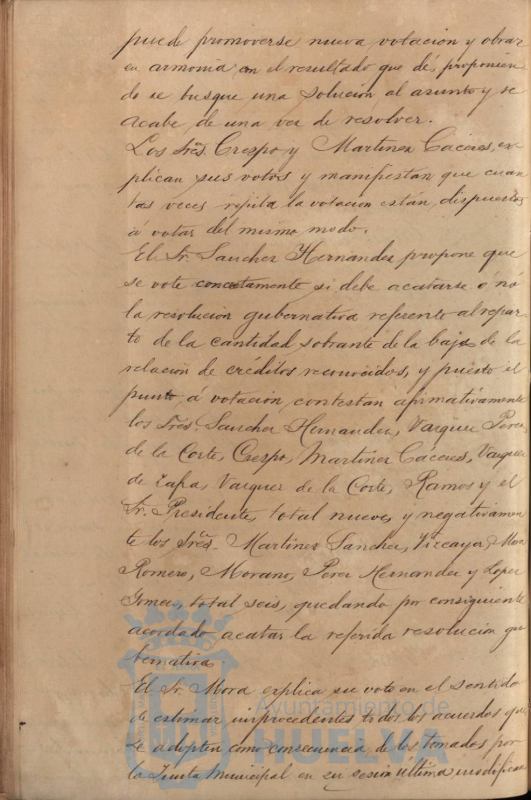 puede promoverse nueva votacion y obrar
en armonia con el resultado que dé, proponien
do se busque una solucion al asunto y se
acabe de una vez de resolver.
Los Srēs. Crespo y Martinez Cáceres, ex
plican sus votos y manifiestan que cuan
tas veces repita la votacion están dispuestos
á votar del mismo modo.
El Sr. Sanchez Hernandez propone que
se vote concretamente si debe acatarse ó no
la resolucion gubernativa referente al repar
to de la cantidad sobrante de la baja de la
relacion de créditos reconocidos, y puesto el
punto á votacion, contestan afirmativamente
los Srēs Sanchez Hernandez, Vazquez Perez
de la Corte, Crespo, Martinez Cáceres, Vazquez
de Zafra, Vazquez de la Corte, Ramos y el
Sr. Presidente, total nueve, y negativamen
te los Srēs. Martinez Sanchez, Vizcaya, Mora
Romero, Morano, Perez Hernandez y Lopez
Gomez, total seis, quedando por consiguiente
acordado acatar la referida resolucion gu
bernativa
El Sr. Mora explica su voto en el sentido
de estimar improcedentes todos los acuerdos que
se adopten como consecuencia de los tomados por
la Junta Municipal en su sesion última, modifican
Ayuntamiento de
HUELVA